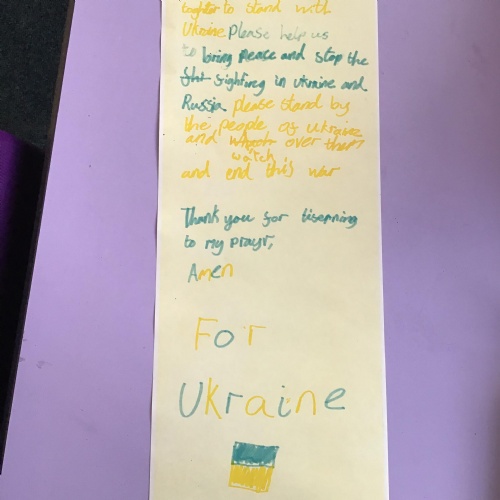 togher to stand with
Ukraine please help us
to bring peace and stop the
fighting in ukraine and
Russia please stand by
the people of ukraine
and watch over them
and end this war
Thank you for liserning
to my prayr,
Amen
For
Ukraine